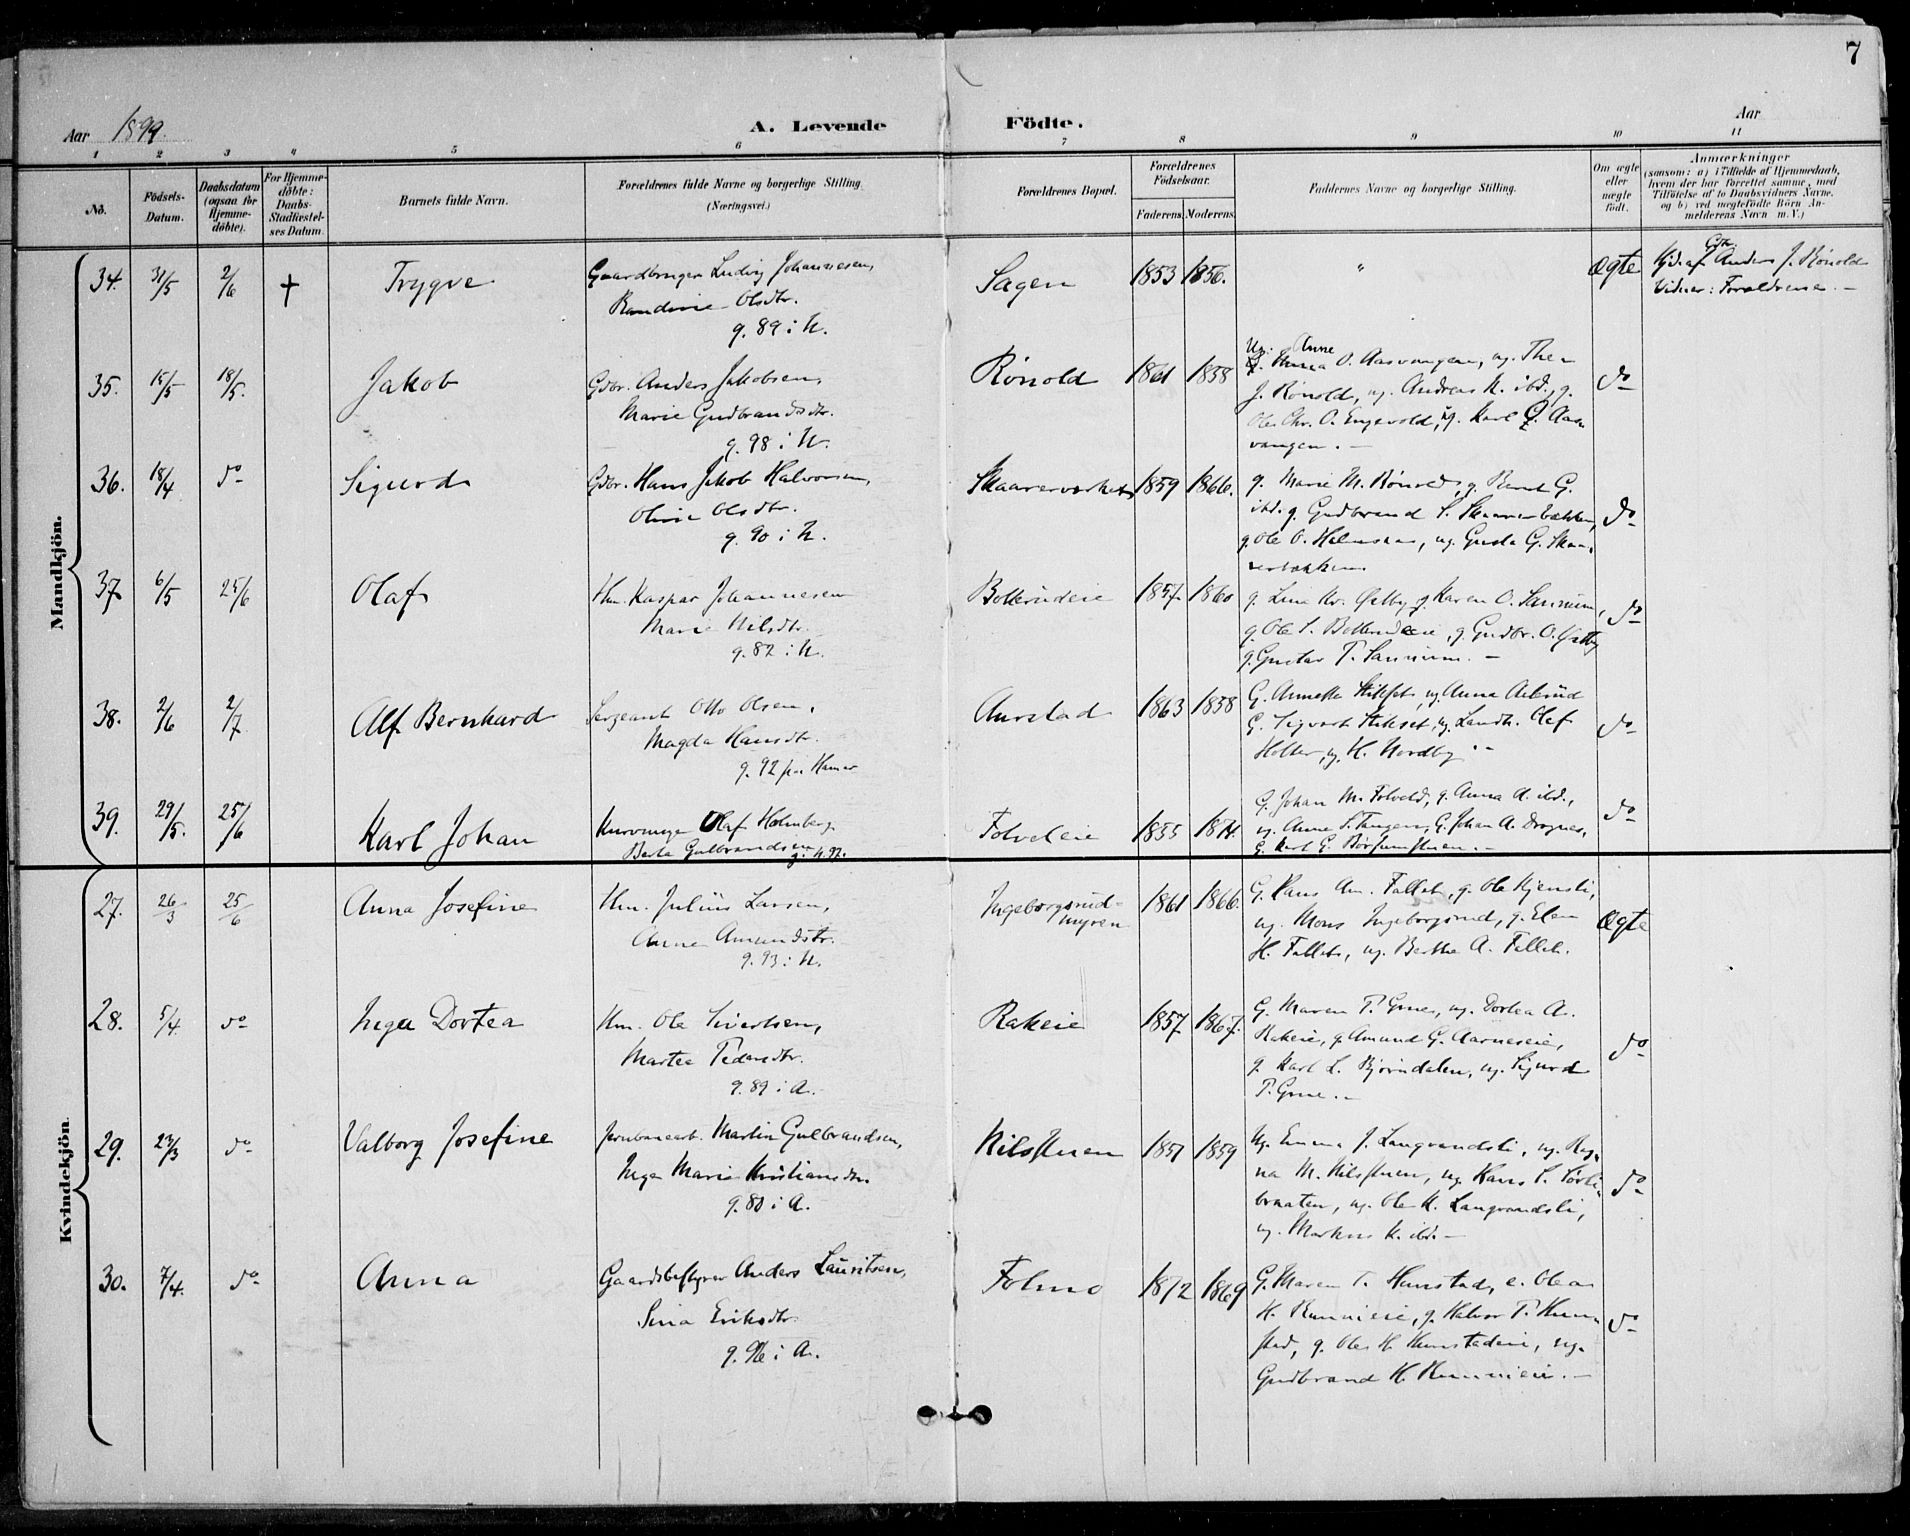 7
Aar 1899.
A. Levende Födte.
Aar
1 2 3 4 5 6 7 8 9 10 11
No.
Födsels-
Datum.
Daabsdatum
(ogsaa for
Hjemme-
döbte).
For Hjemme-
döbte:
Daabs-
Stadfæstel-
ses Datum.
Barnets fulde Navn.
Forældrenes fulde Navne og borgerlige Stilling.
(Næringsvei.)
Forældrenes Bopæl.
Forældrenes
Födselsaar.
Faderens. Moderens.
Faddernes Navne og borgerlige Stilling.
Om ægte
eller
uægte
födt.
Anmærkninger
(saasom: a) i Tilfælde af Hjemmedaab,
hvem der har forrettet samme, med
Tilföielse af to Daabsvidners Navne.
og b) ved uægtefödte Börn An-
melderens Navn m. V.)
Mandkjön.
34. 31/5 2/6 + Trygve
Gaardbruger Ludvig Johannesen,
Randine Olsdtr.
g. 89 i N.
Sagen 1853 1856.
"
Ægte
Hjd. af Gbr. Anders J. Rönold
Vidner: Forældrene. –
35. 15/5 18/5. Jakob
Gdbr. Anders Jakobsen,
Marie Gudbrandsdtr.
g. 98 i N.
Rönold 1861 1858
Ug. Anne O. Aasvangen, ug. Thea
J. Rönold, ug. Andreas K. ibd., g.
Ole Chr. O. Engevold, ug. Karl O. Aas-
vangen. –
do
36. 18/4 do Sigurd
Gdbr. Hans Jakob Halvorsen,
Oline Olsdtr.
g. 90 i N.
1859 1866.
g. Marie M. Rönold, g. Bernt G.
ibd. g. Gudbrand S. Skaarerbakken,
g. Ole O. Holmsaas, ug. Gusta G. Skaa-
rerbakken
do
37. 6/5 25/6 Olaf
Hm. Kaspar Johannesen
Marie Nilsdtr.
g. 82 i N.
Bollerudeie 1857. 1860
g. Lina Kr. Østby, g. Karen O. Sannum,
g. Ole S. Bollerudeie, g. Gudbr. O. Østby
g. Gustav T. Sannum. –
do
38. 2/6 2/7 Alf Bernhard
Sergeant Otto Olsen,
Magda Hansdtr.
g. 92 paa Hamar
Aurstad 1863 1858
G. Annette Stikset, ug. Anna Asbrud
G. Sigvart Stikset, ug. Landh. Olaf
Holter, ug. H. Nordby. –
do
39. 29/5. 25/6 Karl Johan
Olaf Holmberg
Berta Gulbrandsen
g. N. 92.
Folveleie 1855
G. Johan M. Folveld, g. Anna A. ibd.,
ug. Anne S. Tangen, G. Johan A. Drognes,
G. Karl G. Börsumstuen. –
do
Kvindekjön.
27. 26/3 25/6 Anna Josefine
Hm. Julius Larsen,
Anne Amundsdtr.
g. 93 i N.
Ingeborgsrud-
myren 1861 1866.
G. Hans Am. Fallet, g. Ole Kjensli,
ug. Mons Ingeborgsrud, g. Elen
H. Fallet, ug. Berthe A. Fallet.
Ægte
28. 5/4. do Inga Dortea
Hm. Ole Sivertsen,
Martea Pedersdtr.
g. 89 i A.
Rakeie 1857. 1867.
G. Maren P. Grue, ug. Dortea A.
Rakeie, g. Amund G. Aarneseie,
g. Karl L. Björndalen, ug. Sigurd
P. Grue. –
do
29. 23/3 do Valborg Josefine
Jernbanearb. Martin Gulbrandsen,
Inga Marie Kristiansdtr.
g. 80 i A.
Nilsstuen 1851 1859
Ug. Emma J. Langvandsli, ug. Rag-
na M. Nilsstuen, ug. Hans S. Sörli-
braaten, ug. Ole K. Langvandsli,
ug. Markus K. ibd. –
do
30. 7/4. do Anna
Gaardsbestyrer Anders Lauritsen,
Sina Eriksdtr.
g. 96 i A.
Folmo 1872 1869
G. Maren T. Hunstad, e. Olea
H. Runnieie, g. Halvor T. Hun-
stad, g. Ole H. Hunstadeie, ug.
Gudbrand H. Runnieie. –
do